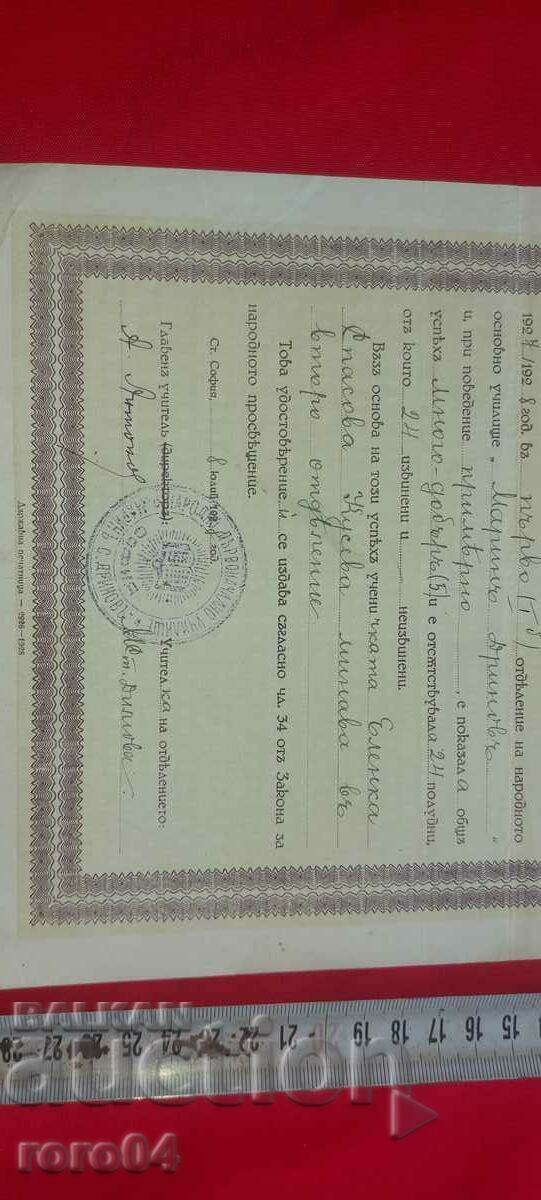 1927/1928 год. въ първо (Iб) отдѣление на народното
основно училище „Маринъ Дриновъ“
и, при поведение примѣрно, е показала общъ
успѣхъ много-добъръ (5) и е отсѫтствувала 24 полудни,
отъ които 24 извинени и неизвинени.
Възъ основа на този успѣхъ ученичката Еленка
Спасова Кусева минава въ
второ отдѣление
Това удостовѣрение и се издава съгласно чл. 34 отъ Закона за
народното просвѣщение.
Ст. София, 8 юлий 1928 год.
Главенъ учитель (директоръ): Учителка на отдѣлението:
Държавна печатница — 1928
15 16 17 18 19 21 22 24 25 27 28
BALKAN
auction
roro04